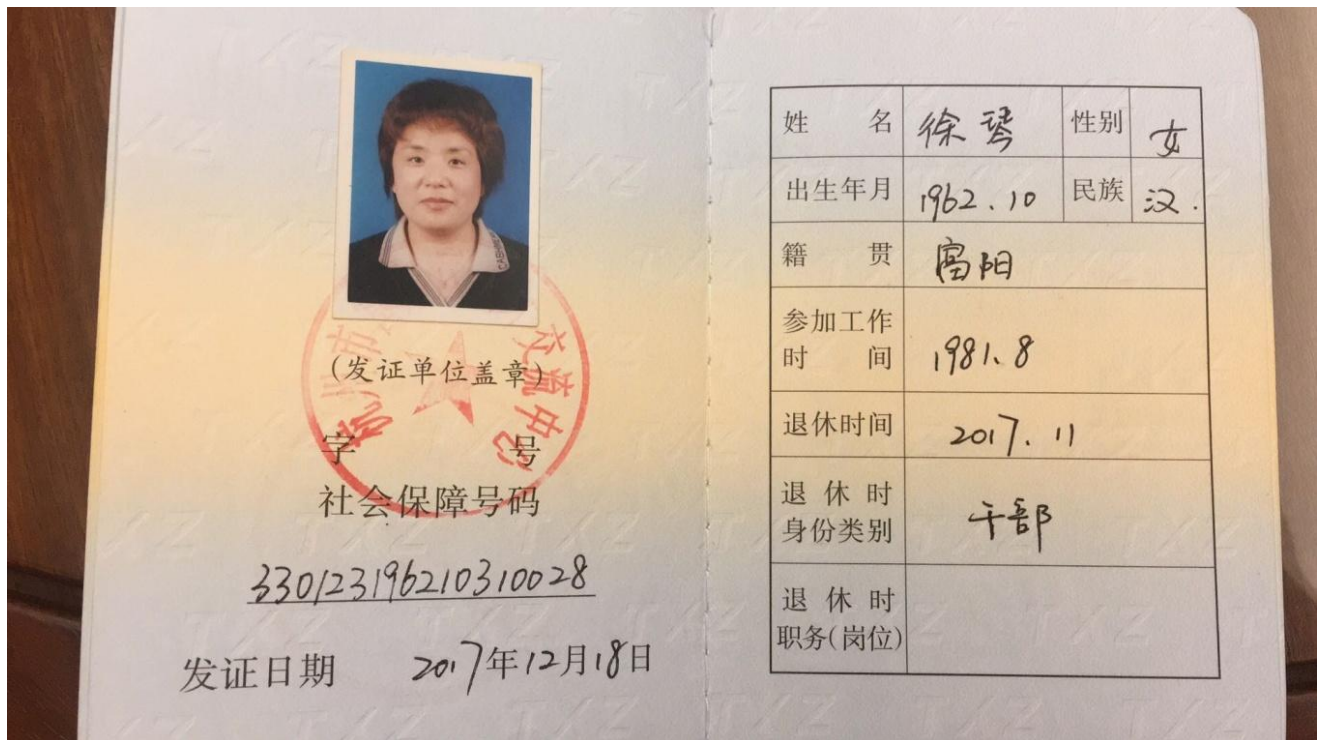 (发证单位盖章)
字 号
社会保障号码
330123196210310028
发证日期 2017年12月18日
姓名 徐琴 性别 女
出生年月 1962.10 民族 汉.
籍贯 富阳
参加工作
时间 1981.8
退休时间 2017.11
退休时
身份类别 干部
退休时
职务(岗位)
交流中心
TXZ